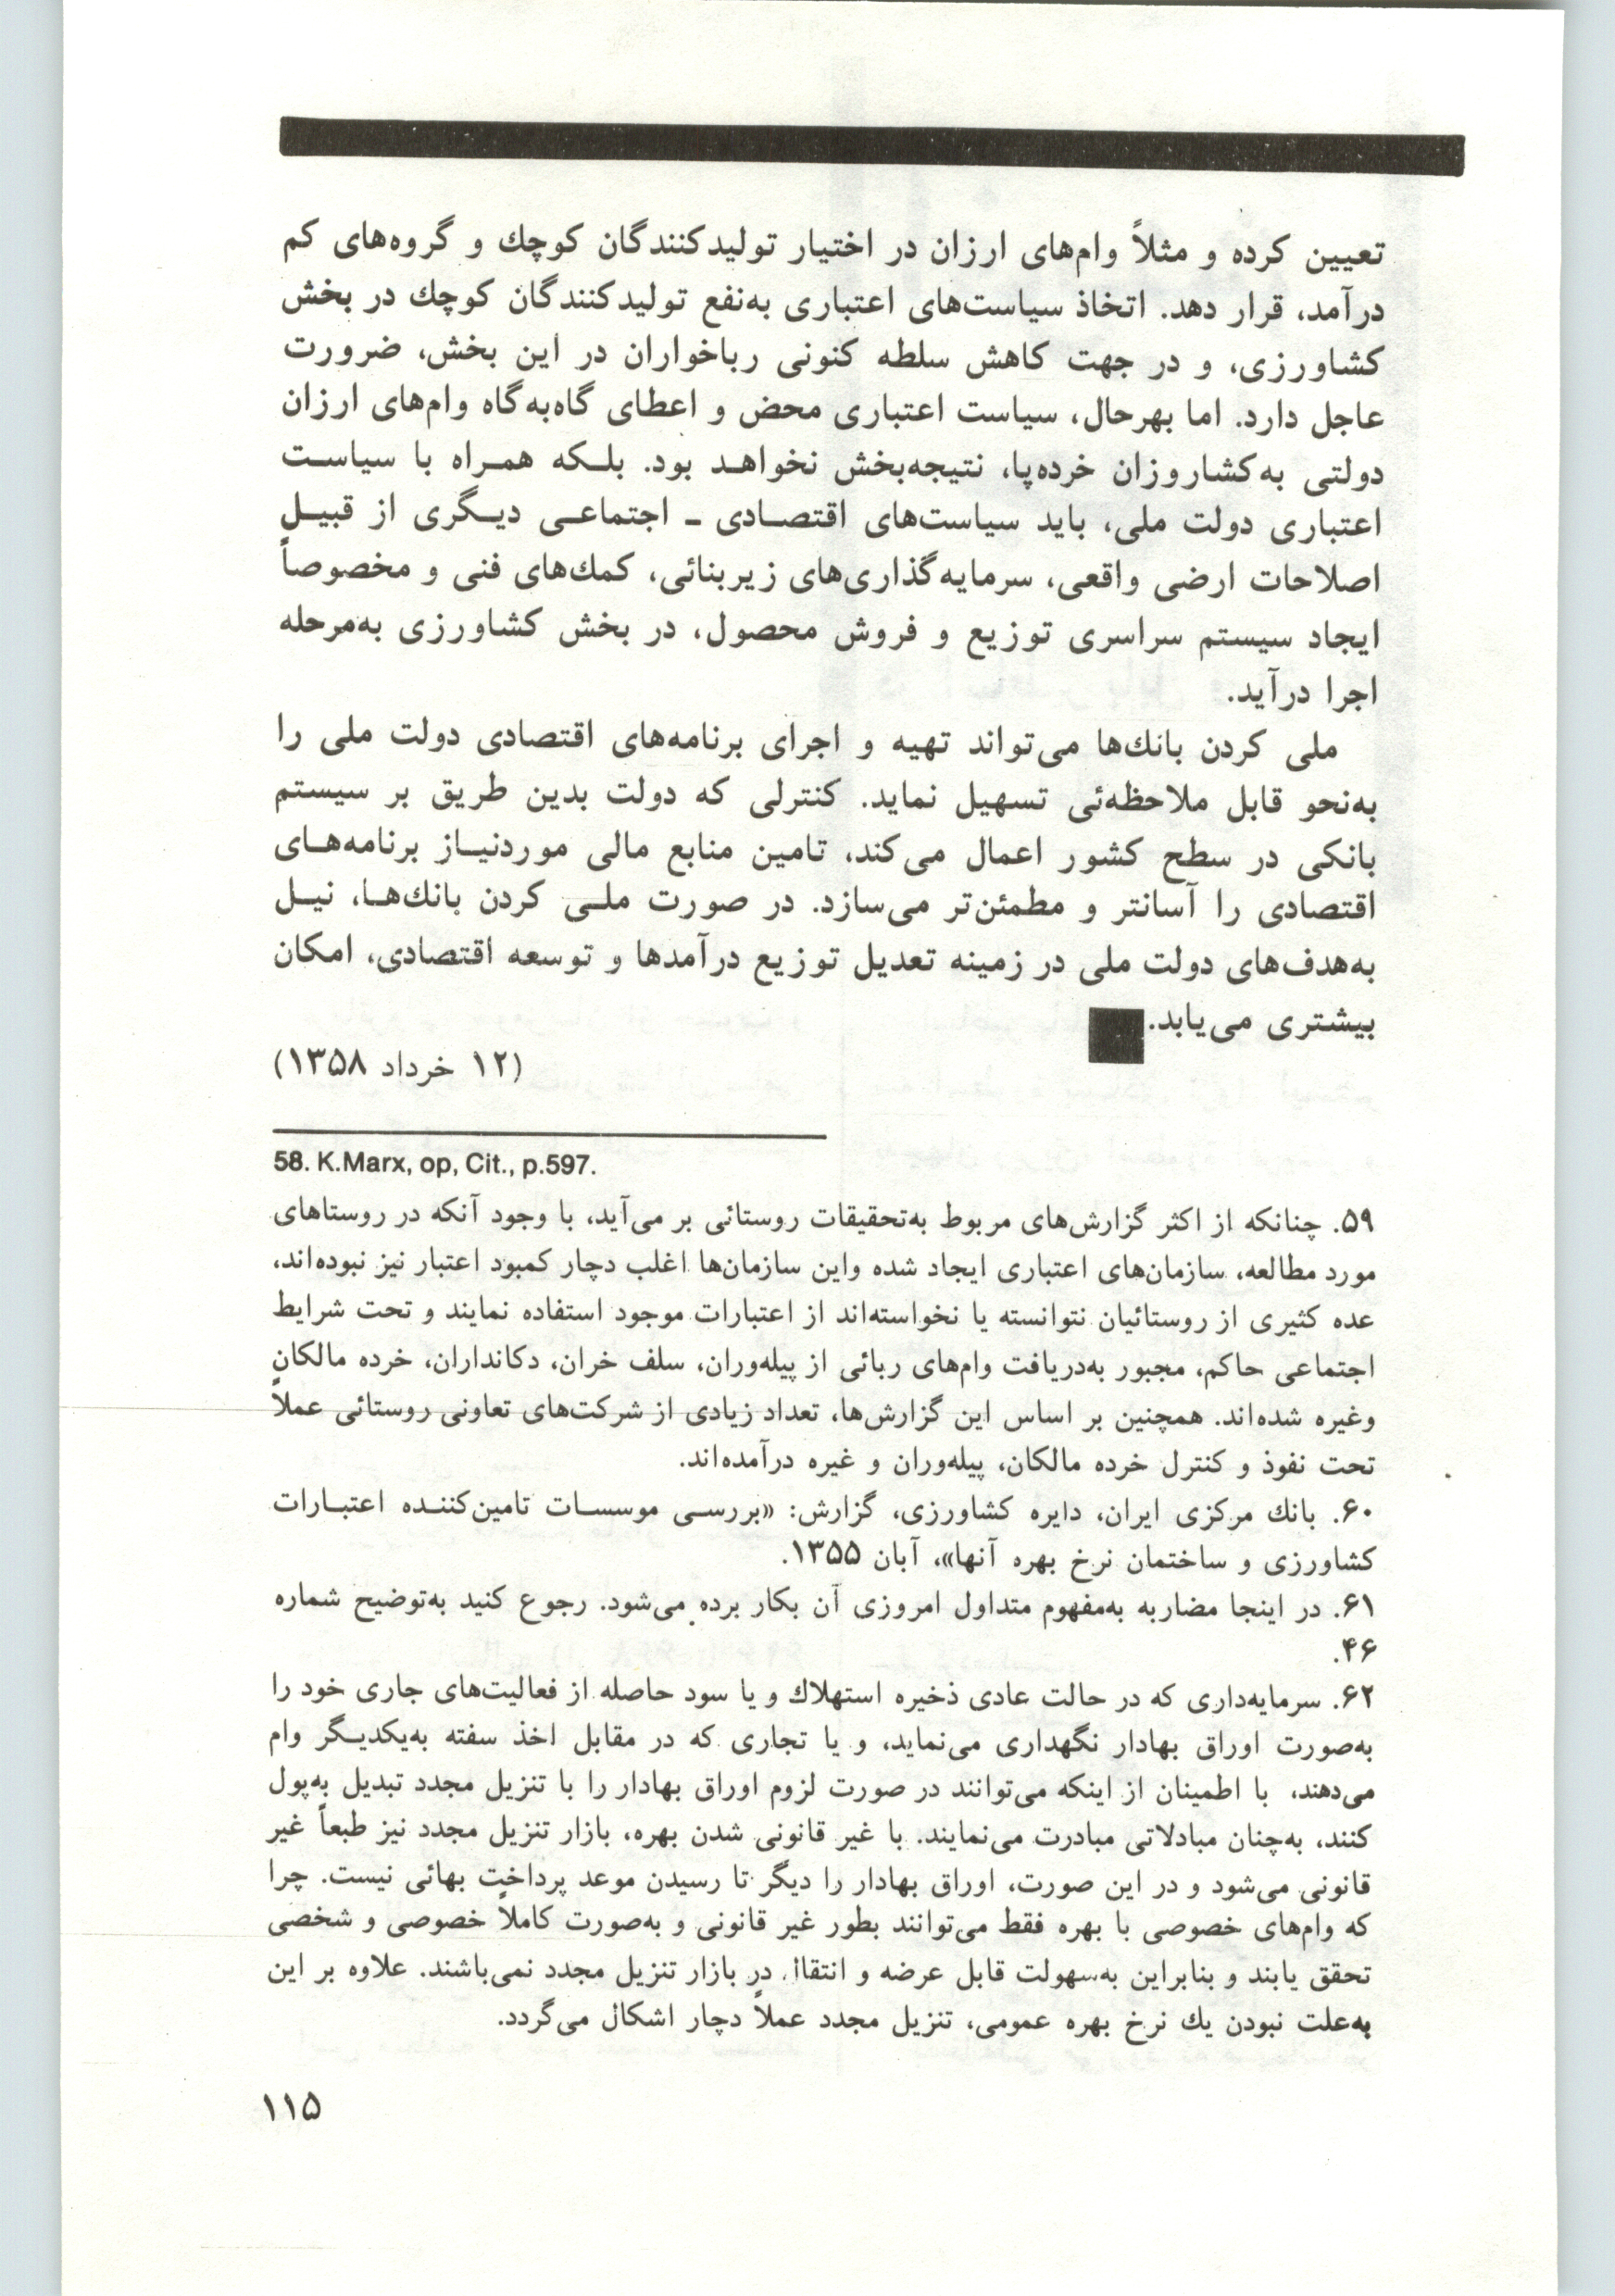 تعیین کرده و مثلاً وام‌های ارزان در اختیار تولیدکنندگان کوچك و گروه‌های کم
درآمد، قرار دهد. اتخاذ سیاست‌های اعتباری به‌نفع تولیدکنندگان کوچك در بخش
کشاورزی، و در جهت کاهش سلطه کنونی رباخواران در این بخش، ضرورت
عاجل دارد. اما بهرحال، سیاست اعتباری محض و اعطای گاه‌به‌گاه وام‌های ارزان
دولتی به‌کشاروزان خرده‌پا، نتیجه‌بخش نخواهـد بود. بلـکه همـراه با سیاسـت
اعتباری دولت ملی، باید سیاست‌های اقتصـادی ـ اجتماعـی دیـگری از قبیـل
اصلاحات ارضی واقعی، سرمایه‌گذاری‌های زیربنائی، کمك‌های فنی و مخصوصاً
ایجاد سیستم سراسری توزیع و فروش محصول، در بخش کشاورزی به‌مرحله
اجرا درآید.
ملی کردن بانك‌ها می‌تواند تهیه و اجرای برنامه‌های اقتصادی دولت ملی را
به‌نحو قابل ملاحظه‌ئی تسهیل نماید. کنترلی که دولت بدین طریق بر سیستم
بانکی در سطح کشور اعمال می‌کند، تامین منابع مالی موردنیـاز برنامه‌هـای
اقتصادی را آسانتر و مطمئن‌تر می‌سازد. در صورت ملـی کردن بانك‌هـا، نیـل
به‌هدف‌های دولت ملی در زمینه تعدیل توزیع درآمدها و توسعه اقتصادی، امکان
بیشتری می‌یابد.
(۱۲ خرداد ۱۳۵۸)
58. K.Marx, op, Cit., p.597.
۵۹. چنانکه از اکثر گزارش‌های مربوط به‌تحقیقات روستائی بر می‌آید، با وجود آنکه در روستاهای
مورد مطالعه، سازمان‌های اعتباری ایجاد شده واین سازمان‌ها اغلب دچار کمبود اعتبار نیز نبوده‌اند،
عده کثیری از روستائیان نتوانسته یا نخواسته‌اند از اعتبارات موجود استفاده نمایند و تحت شرایط
اجتماعی حاکم، مجبور به‌دریافت وام‌های ربائی از پیله‌وران، سلف خران، دکانداران، خرده مالکان
وغیره شده‌اند. همچنین بر اساس این گزارش‌ها، تعداد زیادی از شرکت‌های تعاونی روستائی عملاً
تحت نفوذ و کنترل خرده مالکان، پیله‌وران و غیره درآمده‌اند.
۶۰. بانك مرکزی ایران، دایره کشاورزی، گزارش: «بررسـی موسسـات تامین‌کننـده اعتبـارات
کشاورزی و ساختمان نرخ بهره آنها»، آبان ۱۳۵۵.
۶۱. در اینجا مضاربه به‌مفهوم متداول امروزی آن بکار برده می‌شود. رجوع کنید به‌توضیح شماره
۴۶.
۶۲. سرمایه‌داری که در حالت عادی ذخیره استهلاك و یا سود حاصله از فعالیت‌های جاری خود را
به‌صورت اوراق بهادار نگهداری می‌نماید، و یا تجاری که در مقابل اخذ سفته به‌یکدیـگر وام
می‌دهند، با اطمینان از اینکه می‌توانند در صورت لزوم اوراق بهادار را با تنزیل مجدد تبدیل به‌پول
کنند، به‌چنان مبادلاتی مبادرت می‌نمایند. با غیر قانونی شدن بهره، بازار تنزیل مجدد نیز طبعاً غیر
قانونی می‌شود و در این صورت، اوراق بهادار را دیگر تا رسیدن موعد پرداخت بهائی نیست. چرا
که وام‌های خصوصی با بهره فقط می‌توانند بطور غیر قانونی و به‌صورت کاملاً خصوصی و شخصی
تحقق یابند و بنابراین به‌سهولت قابل عرضه و انتقال در بازار تنزیل مجدد نمی‌باشند. علاوه بر این
به‌علت نبودن یك نرخ بهره عمومی، تنزیل مجدد عملاً دچار اشکال می‌گردد.
۱۱۵